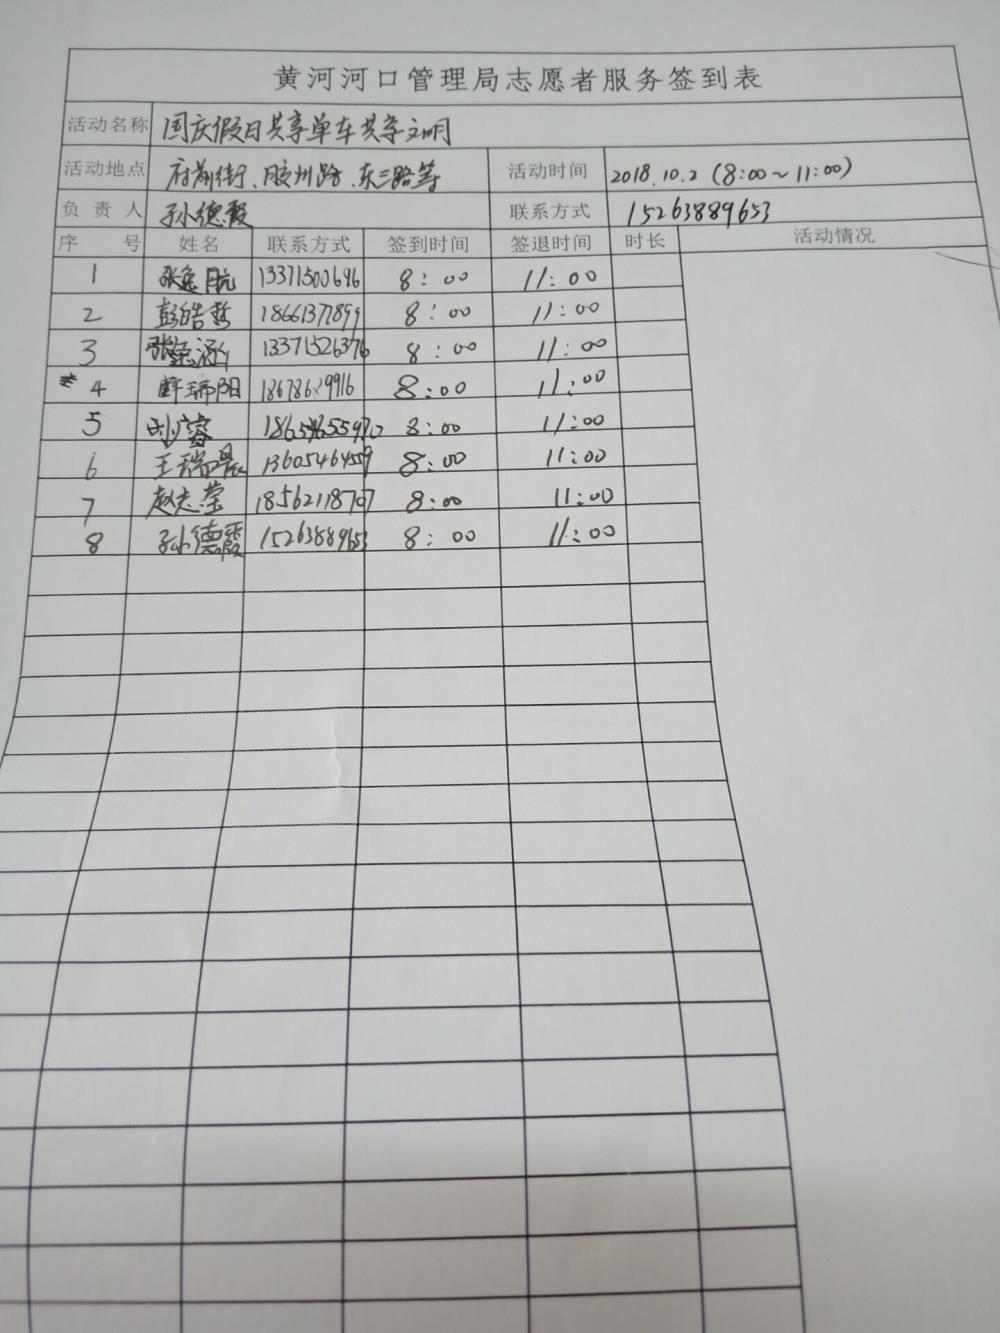 黄河河口管理局志愿者服务签到表
活动名称 国庆假日共享单车共享文明
活动地点 府前街、胶州路、东三路等 活动时间 2018.10.2（8:00～11:00）
负责人 孙德霞 联系方式 15263889653
序号 姓名 联系方式 签到时间 签退时间 时长 活动情况
1 张逸航 13371500696 8:00 11:00
2 彭皓哲 18661377899 8:00 11:00
3 13371526376 8:00 11:00
4 薛瑞阳 8:00 11:00
5 刘睿 8:00 11:00
6 王瑞晨 13605464559 8:00 11:00
7 赵志莹 18562118707 8:00 11:00
8 孙德霞 15263889653 8:00 11:00